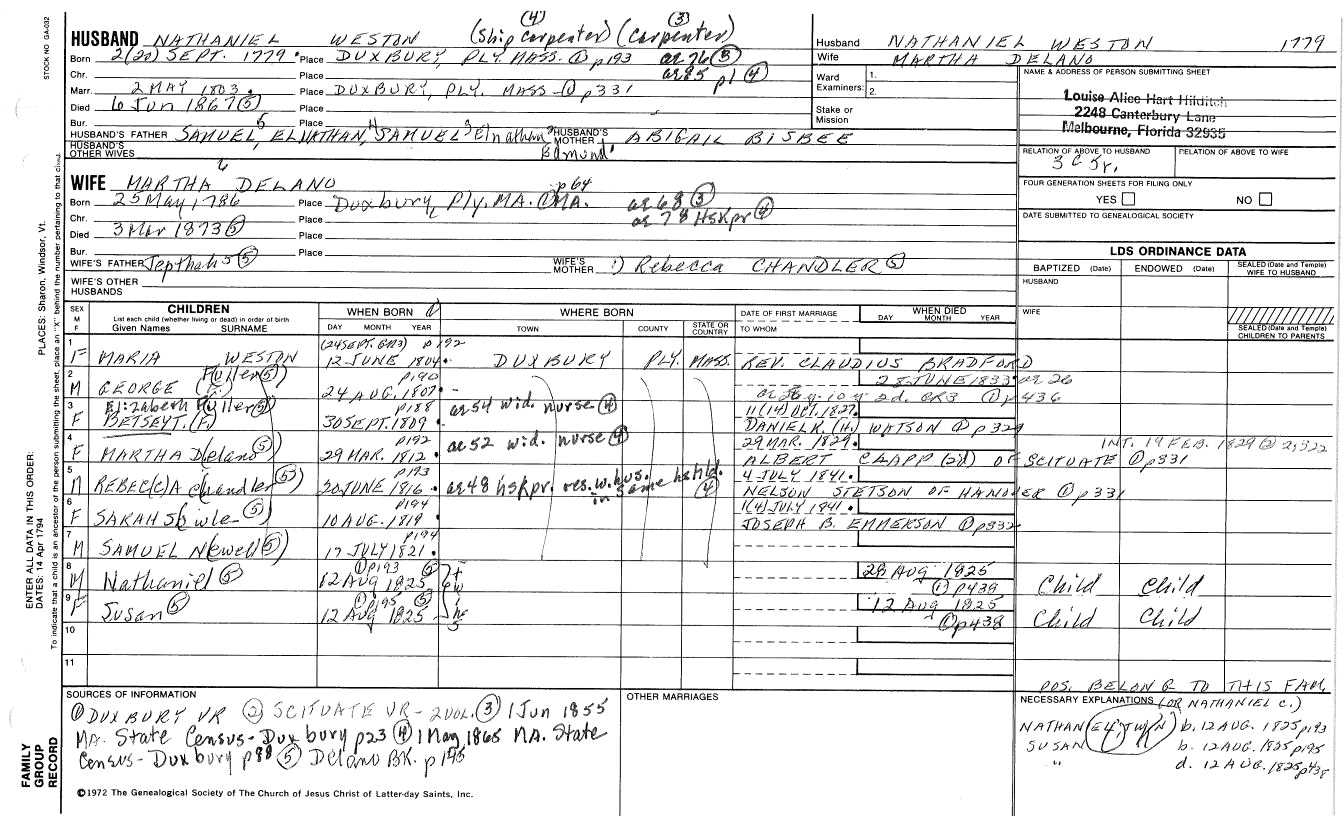 STOCK NO. GA-032
(4) (3)
HUSBAND NATHANIEL WESTON (Ship Carpenter) (Carpenter)
Born 2(20) SEPT. 1779 Place DUXBURY, PLY. MASS. ① p193 ae 76 ③
Chr. Place ae 85 p1 ④
Marr. 2 MAY 1803 Place DUXBURY, PLY. MASS - ① p331
Died 6 Jun 1867 ⑤ Place
Bur. Place
HUSBAND'S FATHER SAMUEL,5 ELNATHAN,4 SAMUEL3 Elnathan2 Edmund1 HUSBAND'S MOTHER ABIGAIL BISBEE
HUSBAND'S OTHER WIVES
Husband NATHANIEL WESTON 1779
Wife MARTHA DELANO
Ward Examiners: 1.
2.
Stake or Mission
NAME & ADDRESS OF PERSON SUBMITTING SHEET
Louise Alice Hart Hilditch
2248 Canterbury Lane
Melbourne, Florida 32935
RELATION OF ABOVE TO HUSBAND RELATION OF ABOVE TO WIFE
3C 5r.
FOUR GENERATION SHEETS FOR FILING ONLY
YES NO
DATE SUBMITTED TO GENEALOGICAL SOCIETY
WIFE MARTHA6 DELANO
Born 25 May, 1786 Place Duxbury, Ply. MA. ① MA. p64 ae 68 ③
Chr. Place ae 78 Hskpr ④
Died 3 Mar 1873 ⑤ Place
Bur. Place
WIFE'S FATHER Jepthah5 ⑤ WIFE'S MOTHER 1) Rebecca CHANDLER ⑤
WIFE'S OTHER HUSBANDS
LDS ORDINANCE DATA
BAPTIZED (Date) ENDOWED (Date) SEALED (Date and Temple) WIFE TO HUSBAND
HUSBAND
WIFE
SEALED (Date and Temple) CHILDREN TO PARENTS
SEX M F CHILDREN WHEN BORN WHERE BORN DATE OF FIRST MARRIAGE WHEN DIED
List each child (whether living or dead) in order of birth
Given Names SURNAME DAY MONTH YEAR TOWN COUNTY STATE OR COUNTRY TO WHOM DAY MONTH YEAR
1 (24 SEPT. GM3) p192
F MARIA WESTON 12 JUNE 1804 DUXBURY PLY. MASS. REV. CLAUDIUS BRADFORD
2 Fuller ⑤ p190 28 JUNE 1833 ae 26
M GEORGE (F.) 24 AUG. 1807 2d. CR3 ① p436
3 Elizabeth Fuller ⑤ p188 ae 54 wid. nurse ④ 11(14) OCT. 1827
F BETSEY T. (F.) 30 SEPT. 1809 DANIEL R. (H.) WATSON ① p329
4 p192 ae 52 wid. nurse ④ 29 MAR. 1829 INT. 19 FEB. 1829 ② 2,322
F MARTHA Delano ⑤ 29 MAR. 1812 ALBERT CLAPP (2d) OF SCITUATE ① p331
5 p193 ae 48 hskpr. res. w. hus. in same hshld. ④ 4 JULY 1841
REBEC(C)A Chandler ⑤ 20 JUNE 1816 NELSON STETSON OF HANOVER ① p331
6 p194 1(4) JULY 1841
F SARAH Sowle ⑤ 10 AUG. 1819 JOSEPH B. EMMERSON ① p332
7 p194
M SAMUEL Newell ⑤ 17 JULY 1821
8 ① p193 ⑤ 28 AUG 1825
M Nathaniel ⑤ 12 AUG 1825 twins ① p439 Child Child
9 ① p195 ⑤ 12 Aug 1825
F Susan ⑤ 12 AUG 1825 ① p438 Child Child
10
11
SOURCES OF INFORMATION
① DUXBURY VR ② SCITUATE VR - 2 VOL. ③ 1 Jun 1855
MA. State Census - Duxbury p23 ④ 1 May 1865 MA. State
Census - Duxbury p88 ⑤ Delano BK. p195
OTHER MARRIAGES
POS. BELONG TO THIS FAM.
NECESSARY EXPLANATIONS (OR NATHANIEL C.)
NATHAN (E4 JWN) b. 12 AUG. 1825 p193
SUSAN b. 12 AUG. 1825 p195
" d. 12 AUG. 1825 p438
©1972 The Genealogical Society of The Church of Jesus Christ of Latter-day Saints, Inc.
FAMILY GROUP RECORD
ENTER ALL DATA IN THIS ORDER:
DATES: 14 Apr 1794
PLACES: Sharon, Windsor, Vt.
To indicate that a child is an ancestor of the person submitting the sheet, place an "X" behind the number pertaining to that child.